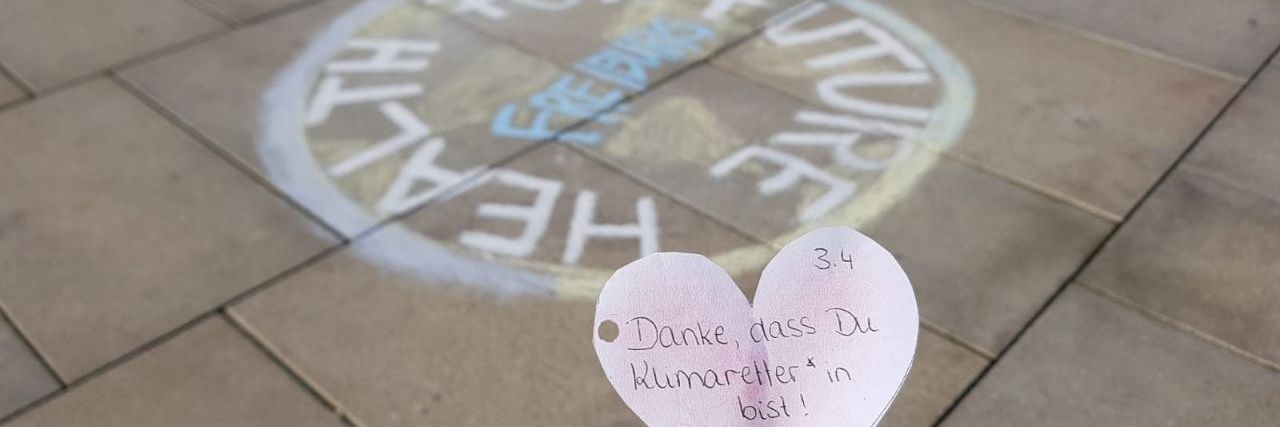 HEALTH
FOR FUTURE
FREIBURG
3.4
Danke, dass Du
Klimaretter*in
bist!